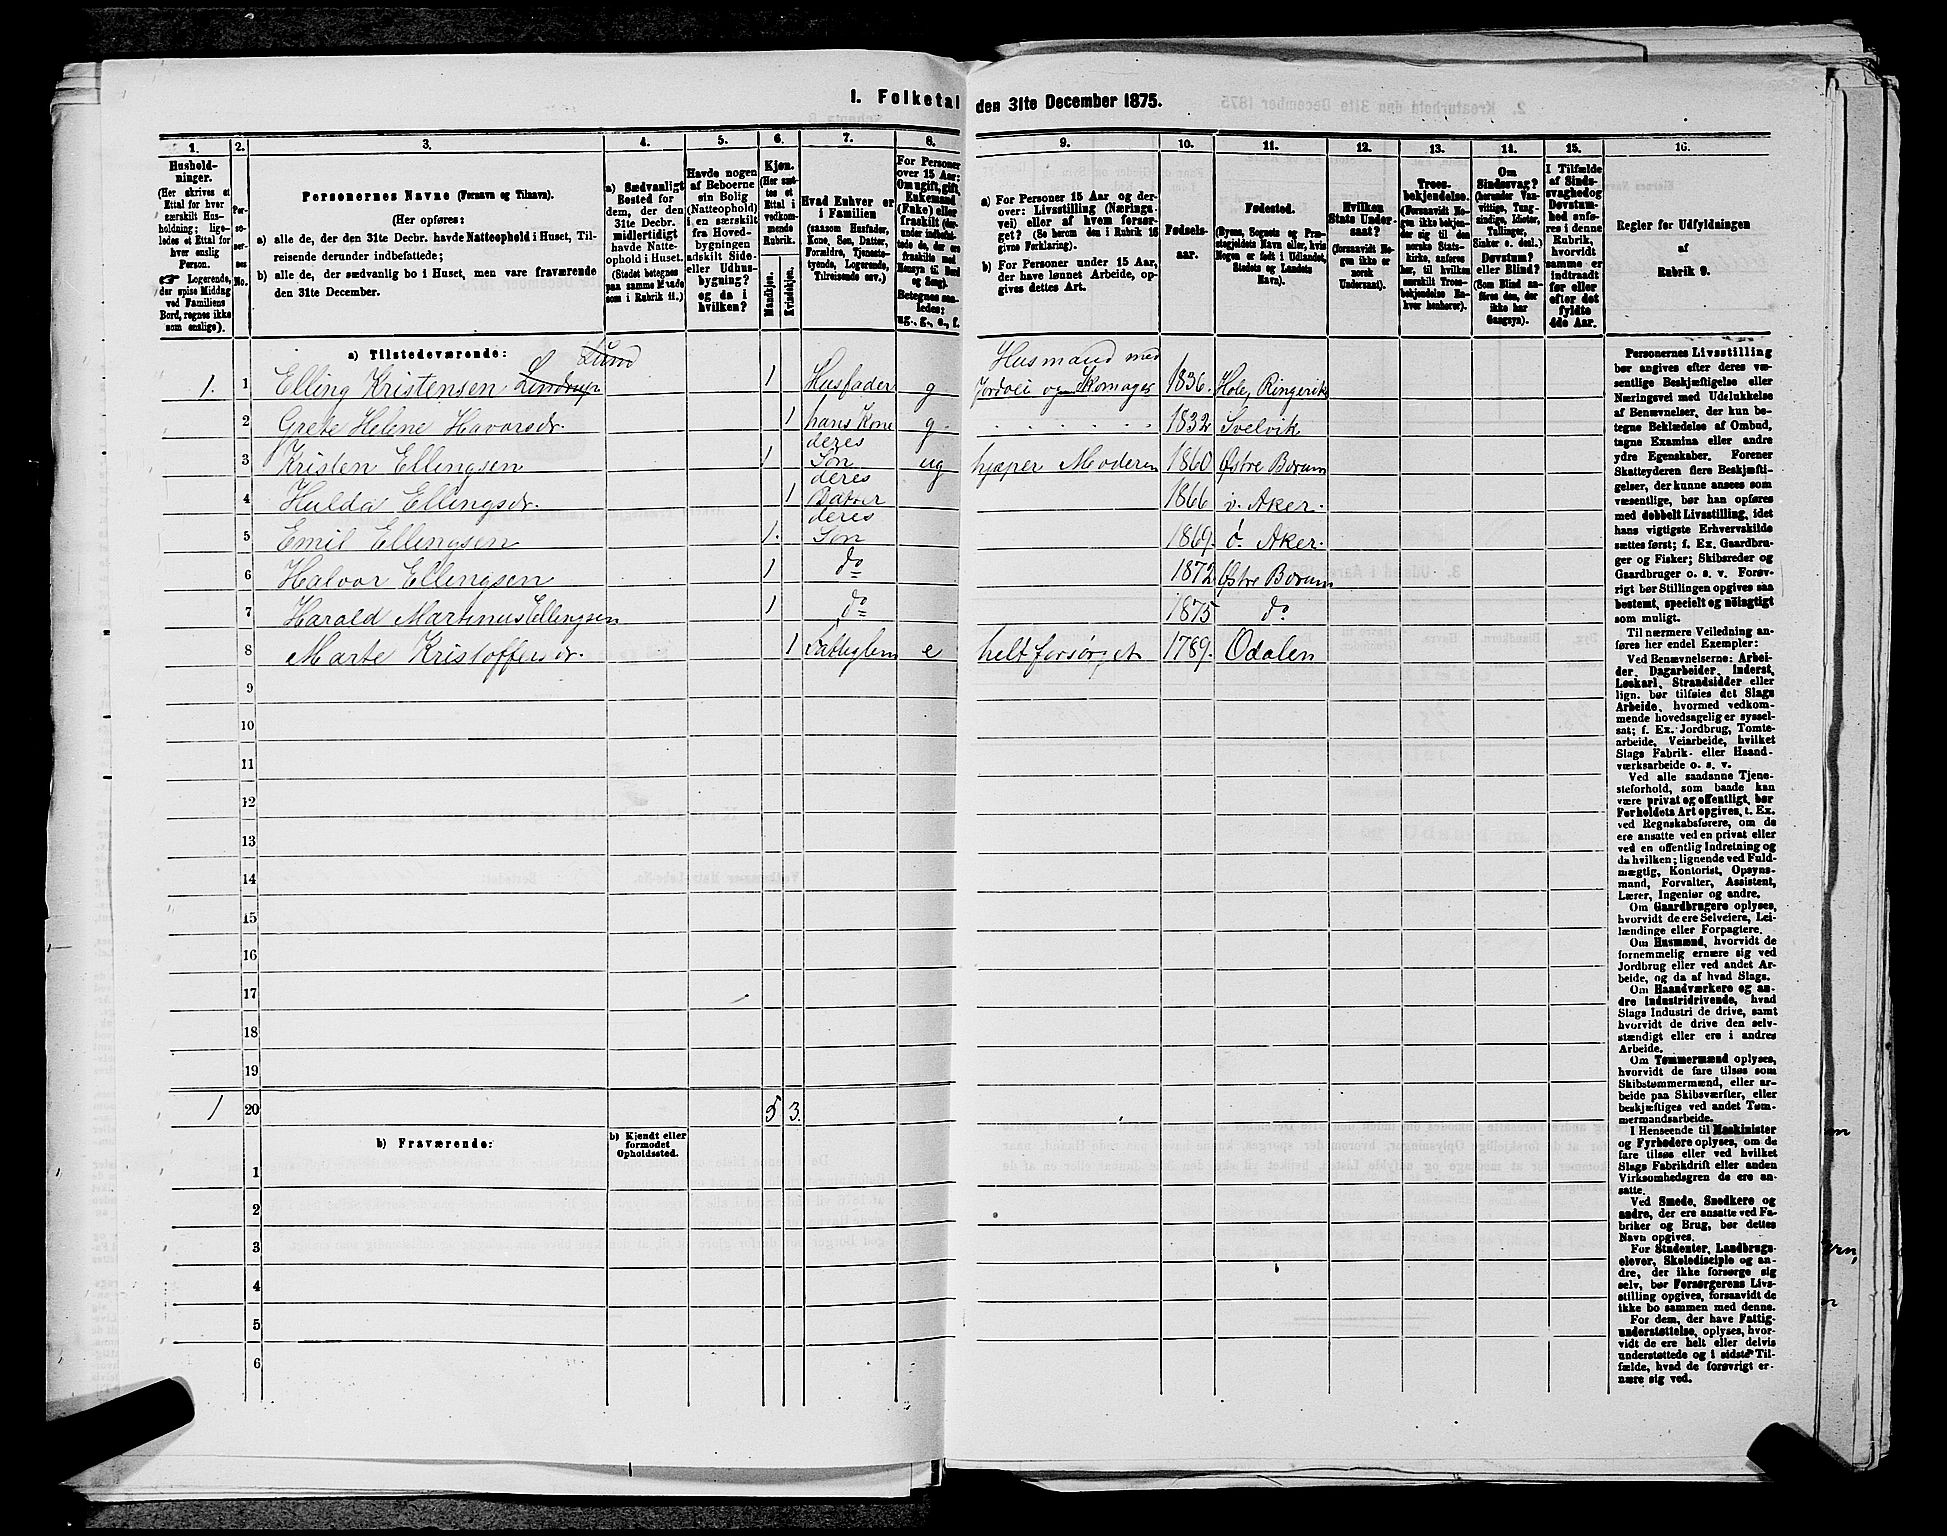 1. Folketal den 31te December 1875.
1.
Hushold-
ninger.
(Her skrives et
Ettal for hver
særskilt Hus-
holdning; lige-
ledes et Ettal for
hver enslig
Person.
Logerende,
der spise Middag
ved Familiens
Bord, regnes ikke
som enslige).
2.
Per-
so-
ner-
nes
No.
3.
Personernes Navne (Fornavn og Tilnavn).
(Her opføres:
a) alle de, der den 31te Decbr. havde Natteophold i Huset, Til-
reisende derunder indbefattede;
b) alle de, der sædvanlig bo i Huset, men vare fraværende
den 31te December.
4.
a) Sædvanligt
Bosted for
dem, der den
31te Decbr.
midlertidigt
havde Natte-
ophold i Huset.
(Stedet betegnes
paa samme Maade
som i Rubrik 11.)
5.
Havde nogen
af Beboerne
sin Bolig
(Natteophold)
i en særskilt
fra Hoved-
bygningen
adskilt Side-
eller Udhus-
bygning?
og da i
hvilken?
6.
Kjøn.
(Her sæt-
tes et
Ettal i
vedkom-
mende
Rubrik.
Mandkjøn.
Kvindekjøn.
7.
Hvad Enhver er
i Familien
(saasom Husfader,
Kone, Søn, Datter,
Forældre, Tjeneste-
tyende, Logerende,
Tilreisende osv.)
8.
For Personer
over 15 Aar:
Om ugift, gift,
Enkemand
(Enke) eller
fraskilt
Betegnes saa-
ledes:
ug., g., e., f.
9.
a) For Personer 15 Aar og der-
over: Livsstilling (Næringsvei)
eller af hvem forsør-
get? (Se herom den i Rubrik 16
givne Forklaring).
b) For Personer under 15 Aar,
der have lønnet Arbeide, op-
gives dettes Art.
10.
Fødsels-
aar.
11.
Fødested.
(Byens, Sognets og Præ-
stegjeldets Navn eller, hvis
Nogen er født i Udlandet,
Stedets og Landets
Navn).
12.
Hvilken
Stats Under-
saat?
(forsaavidt No-
gen ikke er
norsk
Undersaat).
13.
Troes-
bekjendelse.
(Forsaavidt No-
gen ikke bekjen-
der sig til den
norske Stats-
kirke, anføres
her, til hvilken
særskilt Troes-
bekjendelse En-
hver henhører).
14.
Om
Sindssvag?
(herunder Van-
vittige, Tung-
sindige, Idioter,
Tullinger,
Sinker o. desl.)
Døvstum?
eller Blind?
(Som Blind an-
føres den, der
ikke har
Gangsyn).
15.
I Tilfælde
af Sinds-
svaghed og
Døvstum-
hed anfø-
res i denne
Rubrik,
hvorvidt
samme er
indtraadt
før eller
efter det
fyldte
4de Aar.
16.
Regler for Udfyldningen
af
Rubrik 9.
a) Tilstedeværende:
Lund
1. 1 Elling Kristensen 1 Husfader g Husmand med Jordvei og Skomager 1836. Hole, Ringerike
2 Grete Helene Havorsdr. 1 hans Kone g. 1832 Svelvik
3 Kristen Ellingsen 1 deres Søn ug hjæper Moderen 1860 Østre Bærum
4 Hulda Ellingsdr. 1 deres Datter 1866 v. Aker.
5 Emil Ellingsen 1. deres Søn 1869. ø. Aker.
6 Halvor Ellingsen 1 do 1872 Østre Bærum
7 Harald Martinus Ellingsen 1 do 1875 do
8 Marte Kristoffersdr. 1 Fattiglem e helt forsørget 1789. Odalen
9
10
11
12
13
14
15
16
17
18
19
1 20 5 3.
b) Fraværende:
b) Kjendt eller
formodet
Opholdssted.
1
2
3
4
5
6
Personernes Livsstilling
bør angives efter deres væ-
sentlige Beskjæftigelse eller
Næringsvei med Udelukkelse
af Benævnelser, der kun be-
tegne Beklædelse af Ombud,
tagne Examina eller andre
ydre Egenskaber. Forener
Skatteyderen flere Beskjæfti-
gelser, der kunne ansees som
væsentlige, bør han opføres
med dobbelt Livsstilling, idet
hans vigtigste Erhvervskilde
sættes først; f. Ex. Gaardbru-
ger og Fisker; Skibsreder og
Gaardbruger o. s. v. Forøv-
rigt bør Stillingen opgives saa
bestemt, specielt og nøiagtigt
som muligt.
Til nærmere Veiledning an-
føres her endel Exempler:
Ved Benævnelserne: Arbei-
der, Dagarbeider, Inderst,
Løskarl, Strandsidder eller
lign. bør tilføies det Slags
Arbeide, hvormed vedkom-
mende hovedsagelig er syssel-
sat; f. Ex. Jordbrug, Tomte-
arbeide, Veiarbeide, hvilket
Slags Fabrik- eller Haand-
værksarbeide o. s. v.
Ved alle saadanne Tjene-
steforhold, som baade kan
være privat og offentligt, bør
Forholdets Art opgives, t. Ex.
ved Regnskabsførere, om de
ere ansatte ved en privat eller
ved en offentlig Indretning og
da hvilken; lignende ved Fuld-
mægtig, Kontorist, Opsyns-
mand, Forvalter, Assistent,
Lærer, Ingeniør og andre.
Om Gaardbrugere oplyses,
hvorvidt de ere Selveiere, Lei-
lændinge eller Forpagtere.
Om Husmænd, hvorvidt de
fornemmelig ernære sig ved
Jordbrug eller ved andet Ar-
beide, og da af hvad Slags.
Om Haandværkere og an-
dre Industridrivende, hvad
Slags Industri de drive, samt
hvorvidt de drive den selv-
stændigt eller ere i andres
Arbeide.
Om Tømmermænd oplyses,
hvorvidt de fare tilsøs som
Skibstømmermænd, eller ar-
beide paa Skibsværfter, eller
beskjæftiges ved andet Tøm-
mermandsarbeide.
I Henseende til Maskinister
og Fyrbødere oplyses, om de
fare tilsøs eller ved hvilket
Slags Fabrikdrift eller anden
Virksomhedsgren de ere an-
satte.
Ved Smede, Snedkere og
andre, der ere ansatte ved Fa-
briker og Brug, bør dettes
Navn opgives.
For Studenter, Landbrugs-
elever, Skoledisciple og an-
dre, der ikke forsørge sig
selv, bør Forsørgerens Livs-
stilling opgives, forsaavidt de
ikke bo sammen med denne.
For dem, der have Fattig-
understøttelse, oplyses, hvor-
vidt de ere helt eller delvis
understøttede og i sidste Til-
fælde, hvad de forøvrigt er-
nære sig ved.